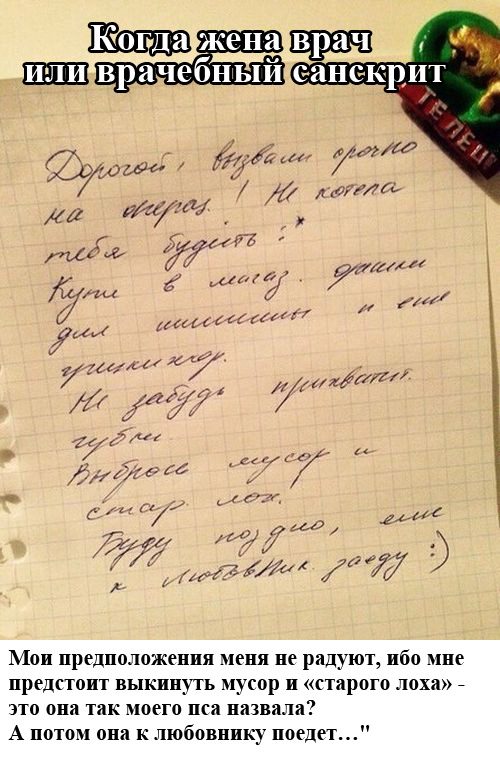 Когда жена врач
или врачебный санскрит
ТЕЛЕЦ
Дорогой, вызвали срочно
на операц.! Не хотела
тебя будить :*
Купи в магаз.
для и еще
Не забудь прихватит.
губки.
Выброси мусор и
стар. лох.!
Буду поздно, еще
к любовник. заеду :)
Мои предположения меня не радуют, ибо мне
предстоит выкинуть мусор и «старого лоха» -
это она так моего пса назвала?
А потом она к любовнику поедет…"